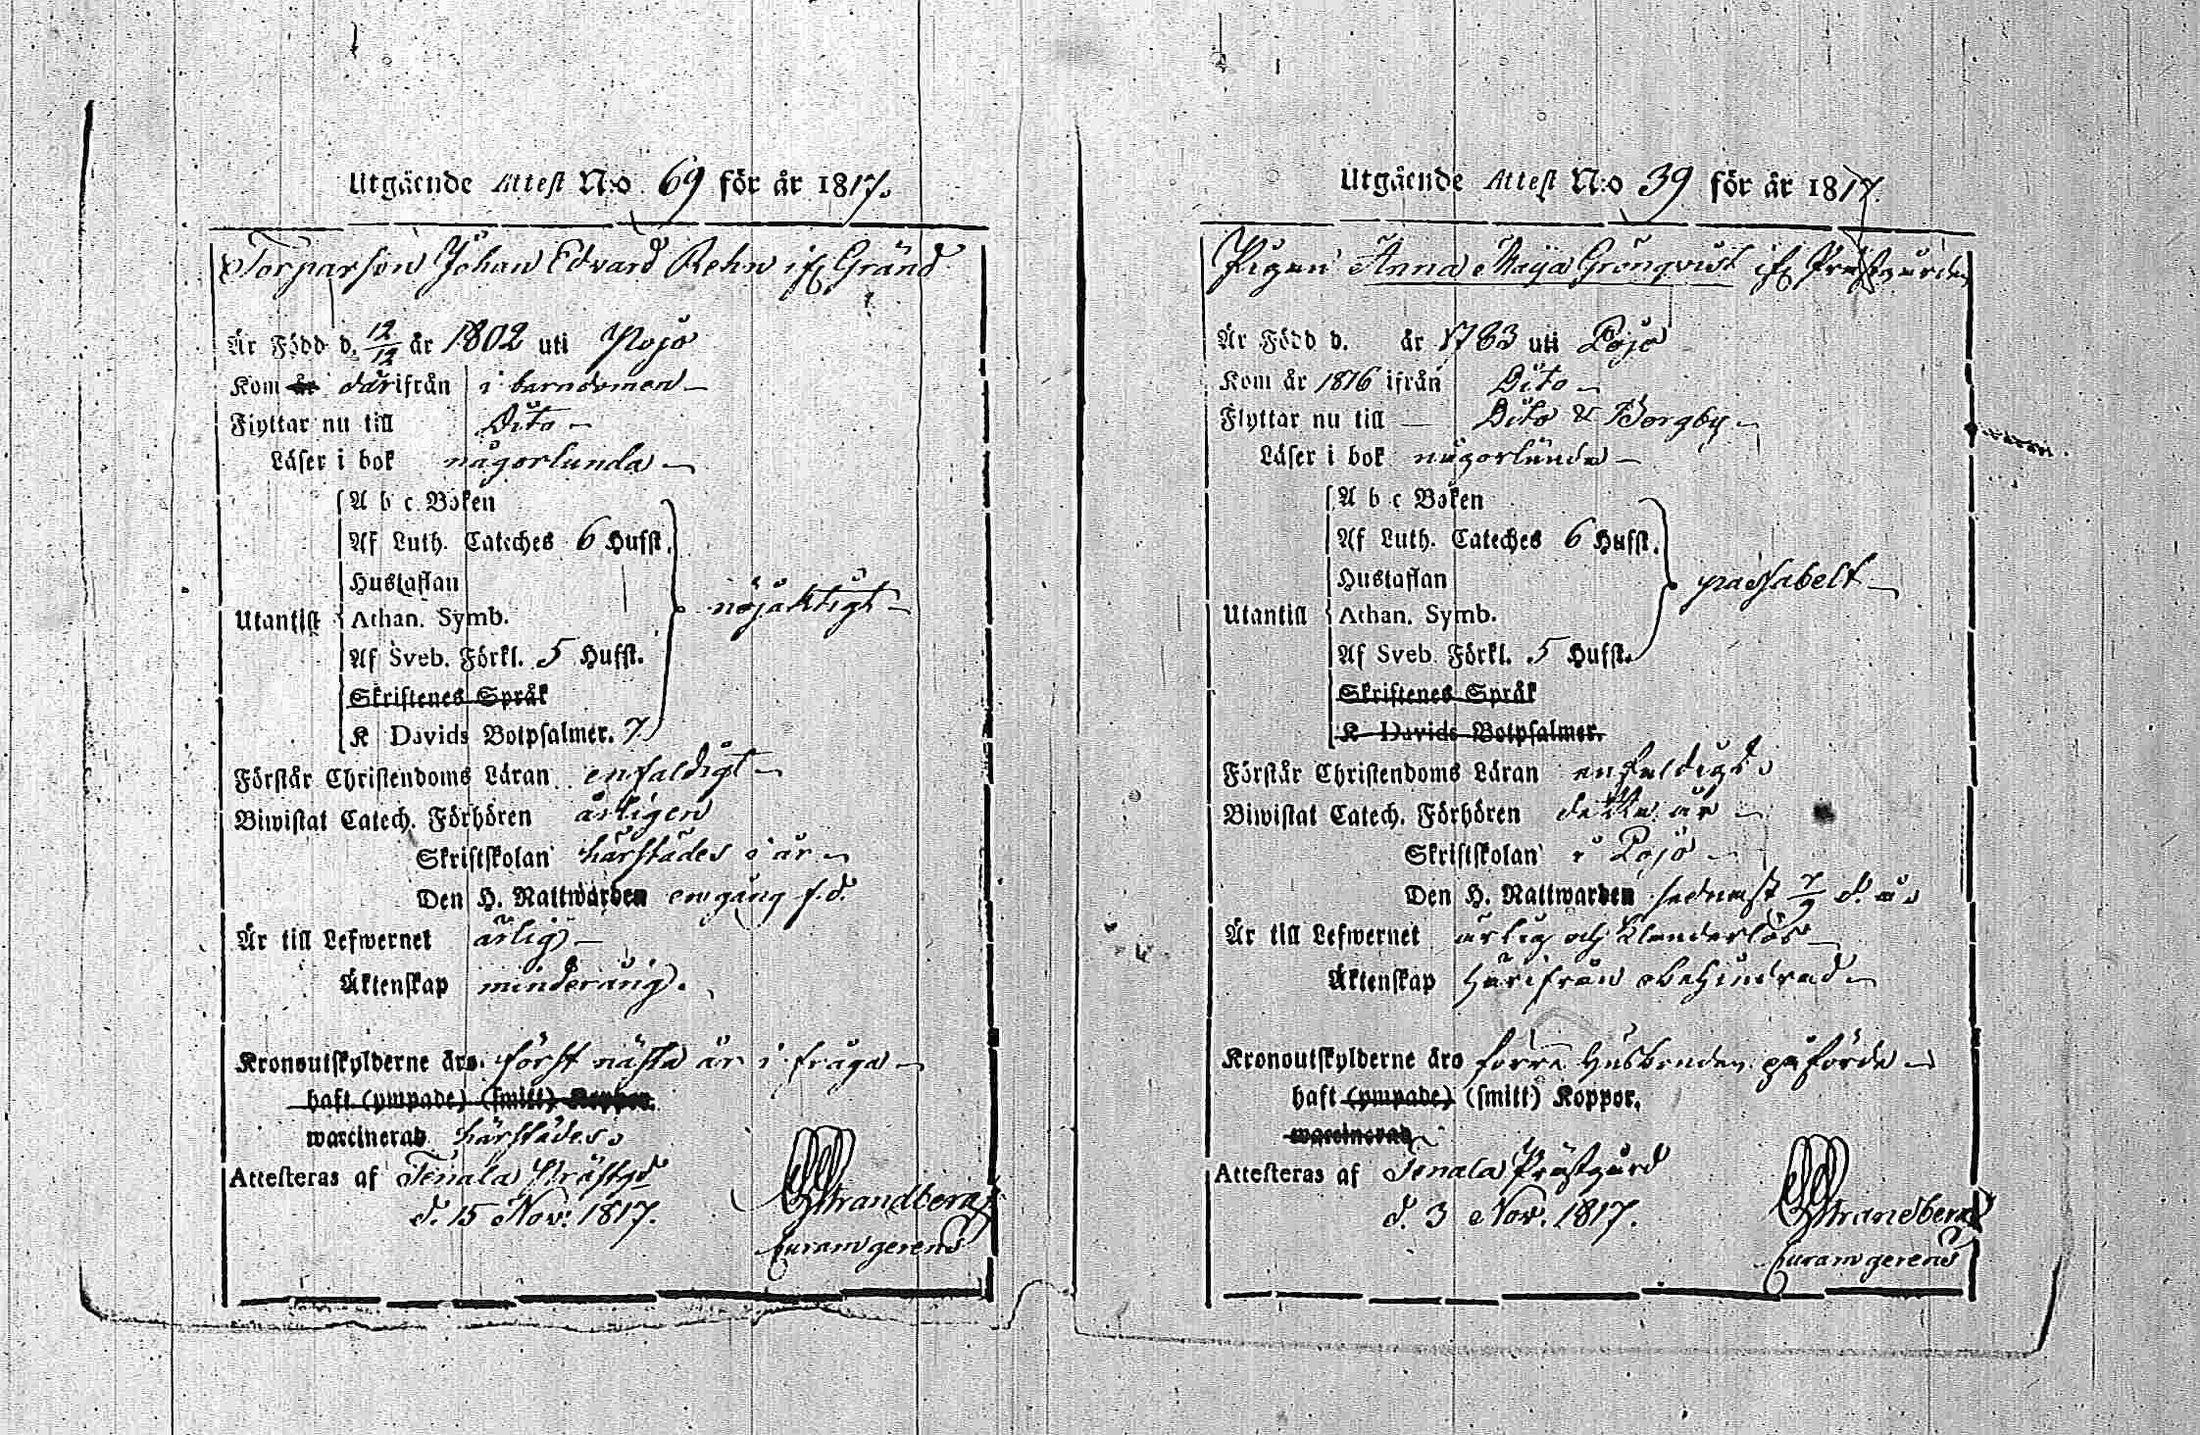 Utgående Attest N:o 69 för år 1817.
Torparsonen Johan Edvard Rehn ifr. Gränd
Är Född d. 12/12 år 1802 uti Pojo
Kom år därifrån i barndomen
Flyttar nu till Dito
Läser i bok någorlunda
A b c Boken
Af Luth. Cateches 6 Hufst.
Hustaflan
Utantill Athan. Symb. nöjaktigt
Af Sveb. Förkl. 5 Hufst.
Skriftenes Språk
K Davids Botpsalmer. 7
Förstår Christendoms Läran enfaldigt
Biwistat Catech. Förhören årligen
Skriftskolan härstädes i år
Den H. Nattwarden en gång f.d.
Är till Lefwernet ärlig
Äktenskap minderårig.
Kronoutskylderne äro. först nästa år i fråga
haft (ympade) (smitt) Koppor.
waccinerad härstädes
Attesteras af Tenala Prästgd
d. 15 Nov: 1817.
Strandberg
Curam gerens
Utgående Attest N:o 39 för år 1817.
Pigan Anna Maija Grönqvist ifr. Prästgården
Är Född d. år 1783 uti Pojo
Kom år 1816 ifrån Dito
Flyttar nu till Dito & Borgby
Läser i bok någorlunda
A b c Boken
Af Luth. Cateches 6 Hufst.
Hustaflan passabelt
Utantill Athan. Symb.
Af Sveb. Förkl. 5 Hufst.
Skriftenes Språk
K Davids Botpsalmer.
Förstår Christendoms Läran enfaldigt
Biwistat Catech. Förhören detta år
Skriftskolan i Pojo
Den H. Nattwarden sednast 7/9 d. å.
Är till Lefwernet ärlig och klanderlös
Äktenskap härifrån obehindrad
Kronoutskylderne äro förra Husbonden påförde
haft (ympade) (smitt) Koppor.
waccinerad
Attesteras af Tenala Prästgård
d. 3 Nov. 1817.
Strandberg
Curam gerens